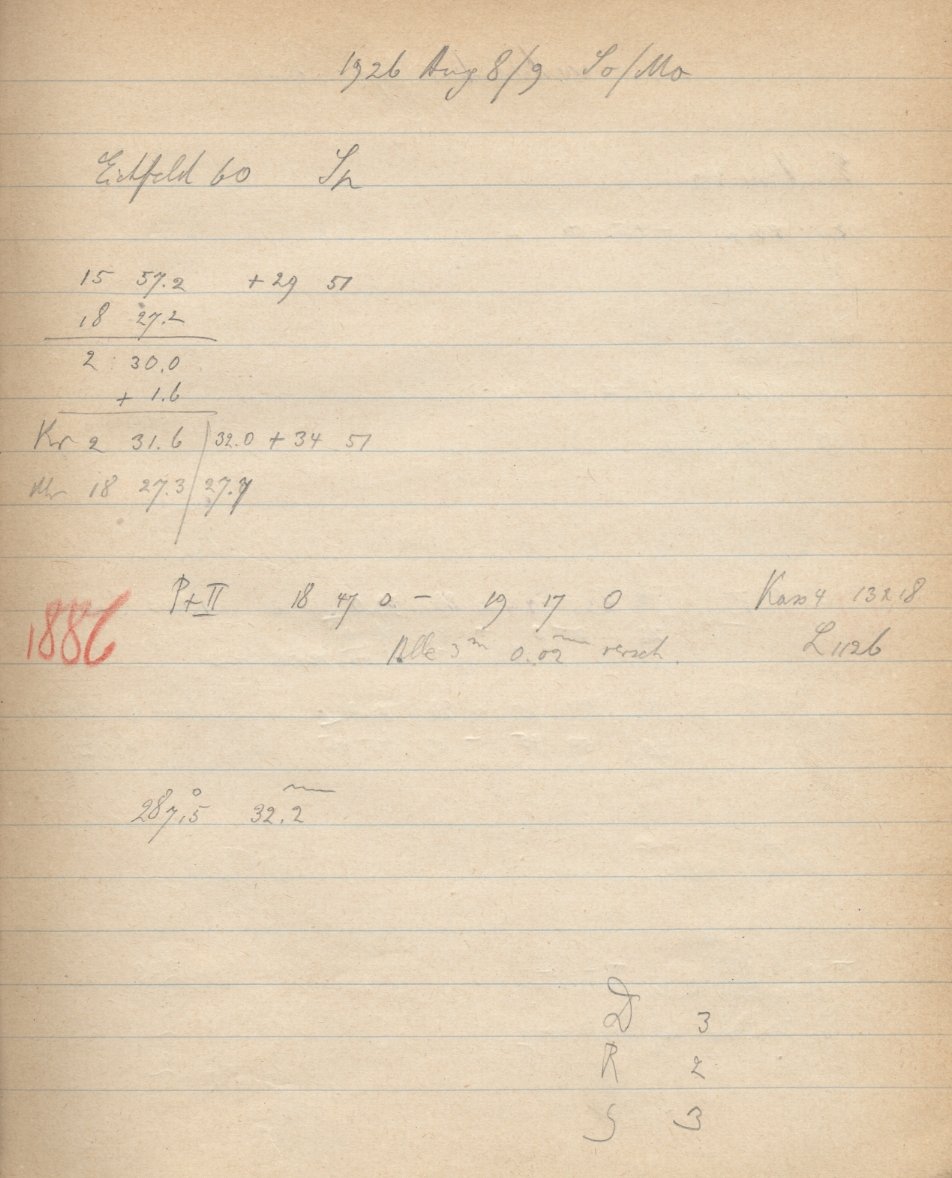 1926 Aug 8/9 So/Mo
Eichfeld 60 Sh
15 57.2 +29 51
18 27.2
2 30.0
+ 1.6
Kr 2 31.6 32.0 + 34 51
Uhr 18 27.3 27.7
P+II 18 47 0 – 19 17 0 Kass 4 13x18
1886 Alle 3m 0.02mm versch. L 1126
287°.5 32.2mm
D 3
R 2
S 3